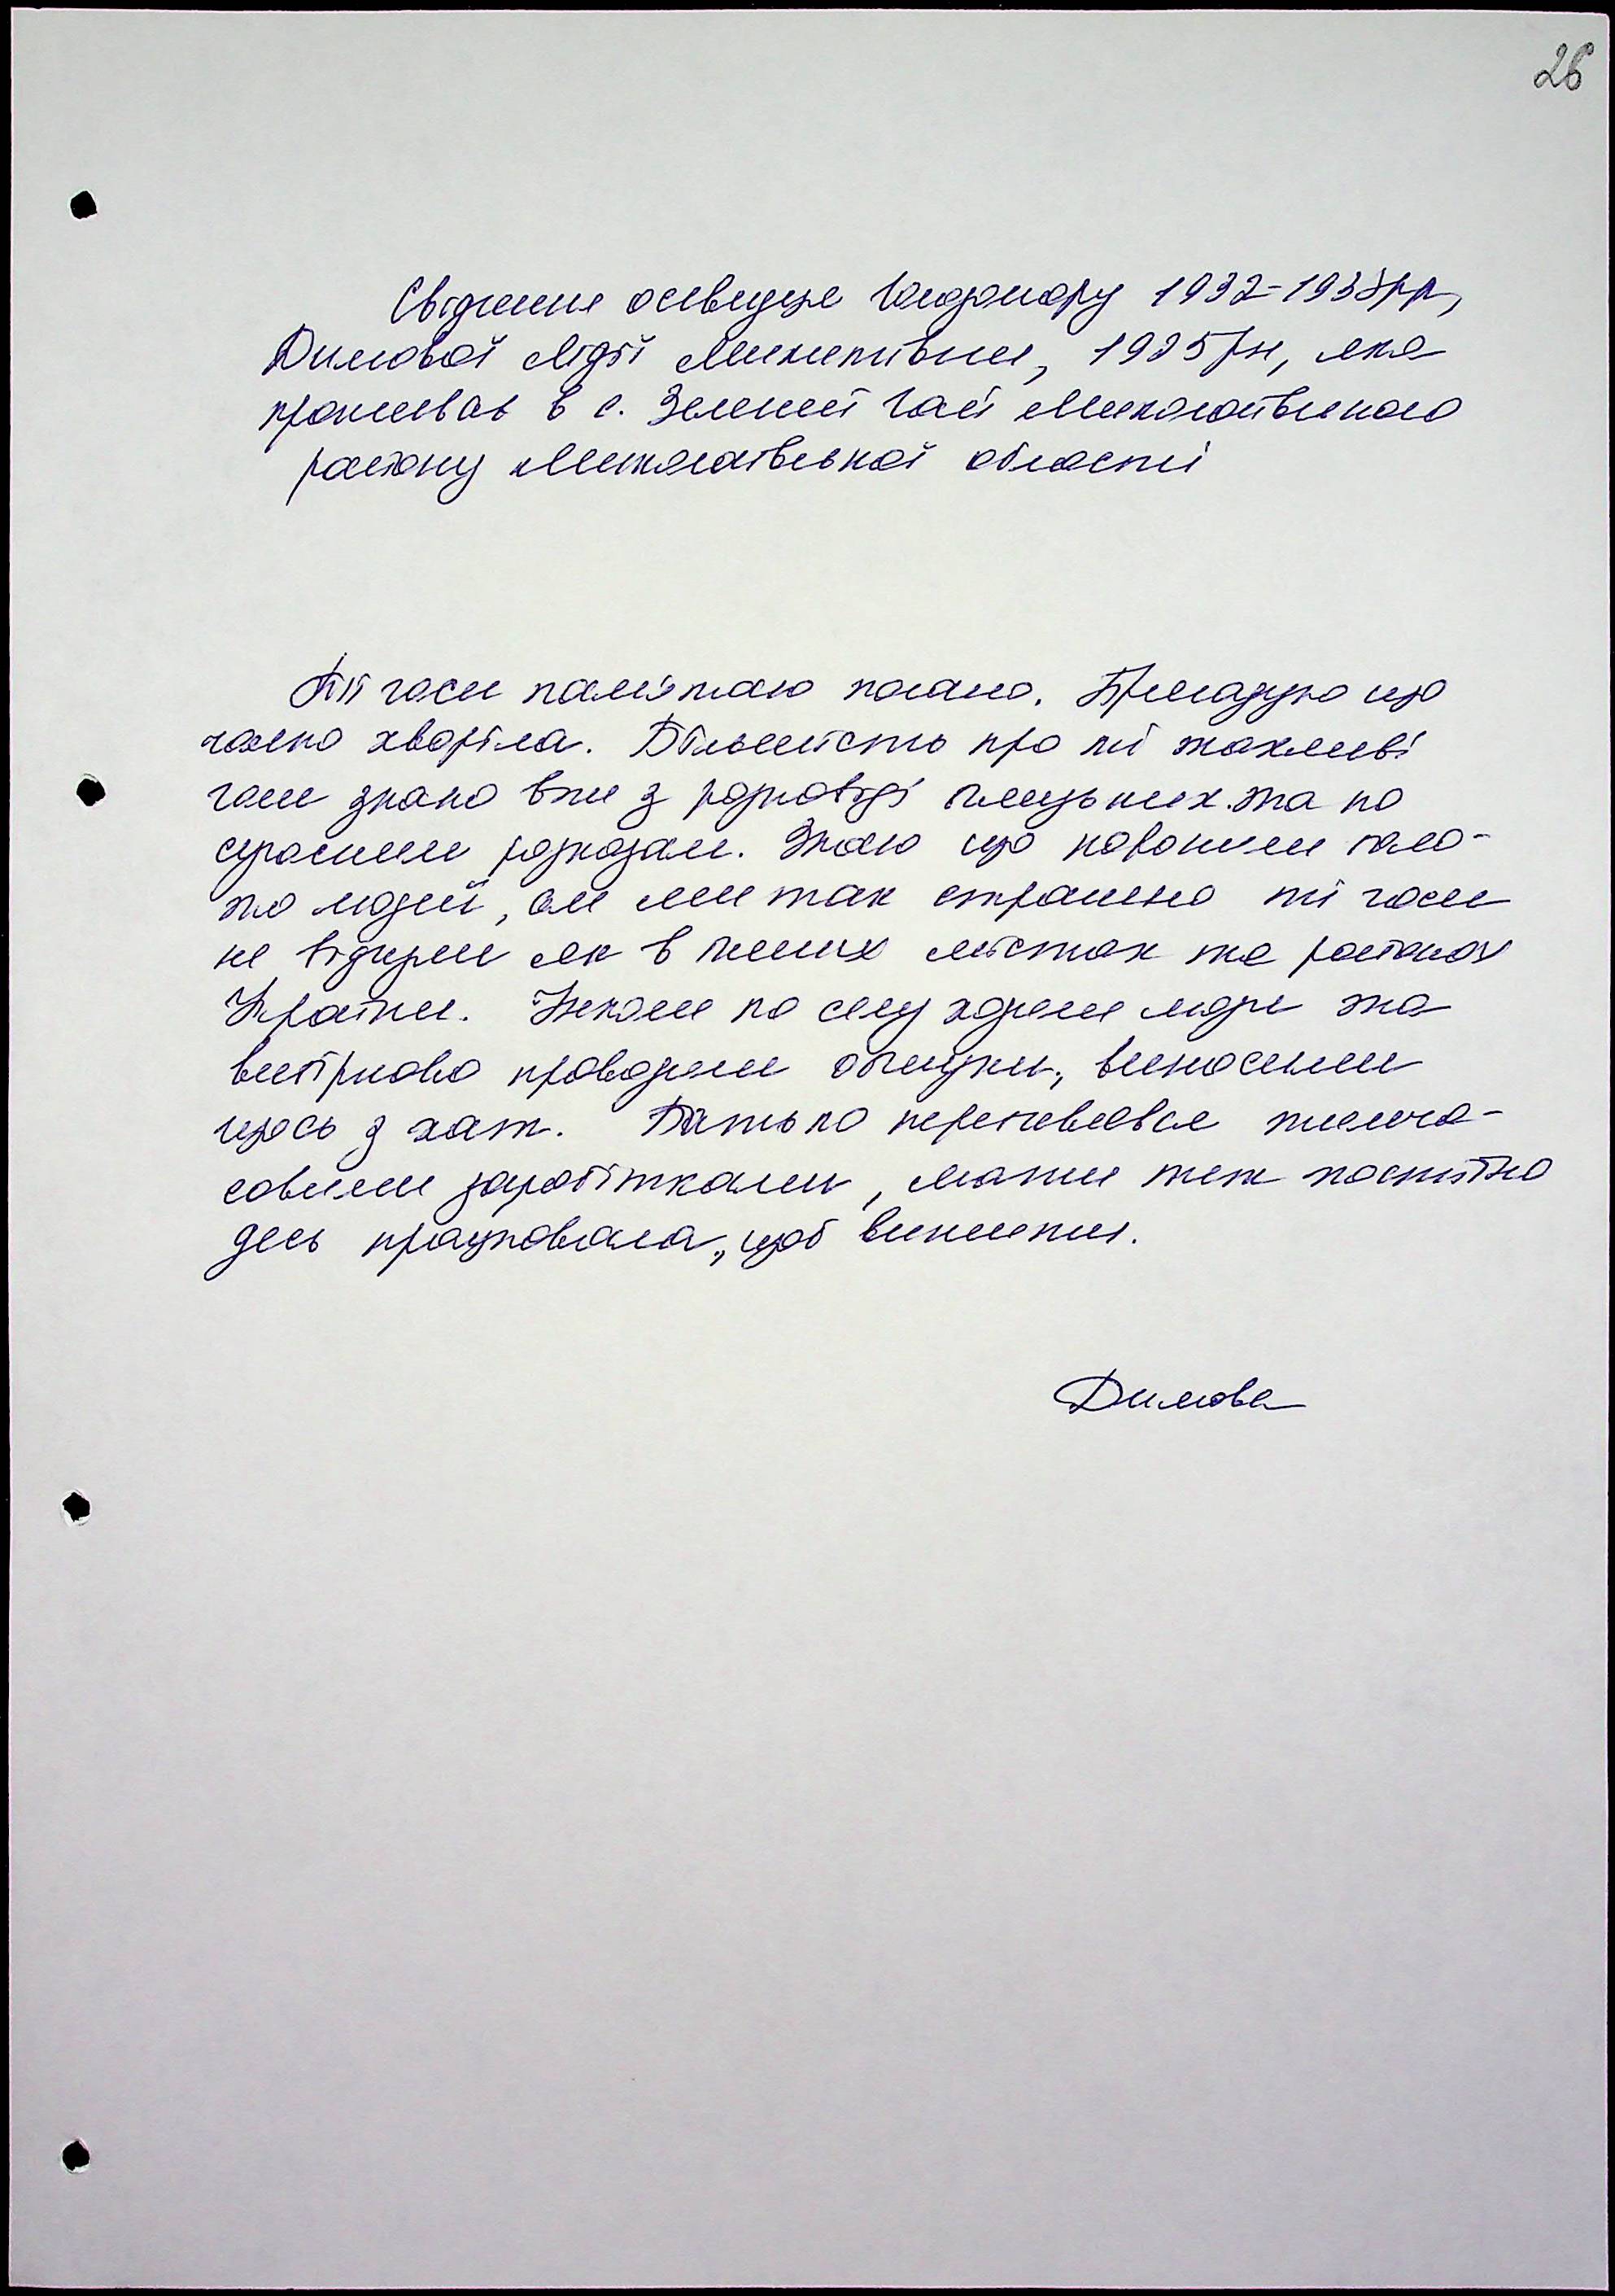 26
Свідчення очевидця Голодомору 1932-1933рр,
Димової Лідії Микитівни, 1925рн, яка
проживає в с. Зелений Гай Миколаївського
району Миколаївської області
Ті часи пам'ятаю погано. Пригадую що
часто хворіла. Більшість про ті жахливі
часи знаю вже з розповіді близьких та по
розказам. Знаю що хоронили бага-
то людей, але ми так страшно ті часи
не відчули як в інших містах та районах
України. Інколи по селу ходили люди та
вибірково проводили обшуки, виносили
щось з хат. Батько перебивався тимча-
совими заробітками, мати теж постійно
десь працювала, щоб вижити.
Димова